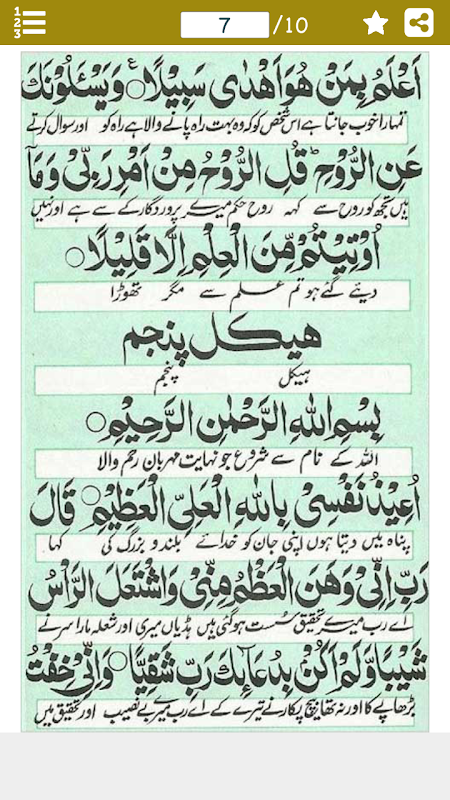 7 /10
اَعْلَمُ بِمَنْ هُوَ اَهْدٰى سَبِيْلًا ۞ وَيَسْـَٔلُوْنَكَ
تمہارا خوب جانتا ہے اس شخص کو کہ وہ بہت راہ پانے والا ہے راہ کو اور سوال کرتے
عَنِ الرُّوْحِ ؕ قُلِ الرُّوْحُ مِنْ اَمْرِ رَبِّىْ وَمَآ
ہیں تجھ کو روح سے کہہ روح حکم میرے پروردگار کے سے ہے اور نہیں
اُوْتِيْتُمْ مِّنَ الْعِلْمِ اِلَّا قَلِيْلًا ۞
دیئے گئے ہو تم علم سے مگر تھوڑا
هيكل پنجم
ہیکل پنجم
بِسْمِ اللهِ الرَّحْمٰنِ الرَّحِيْمِ ۞
اللہ کے نام سے شروع جو نہایت مہربان رحم والا
اُعِيْذُ نَفْسِىْ بِاللهِ الْعَلِىِّ الْعَظِيْمِ ۞ قَالَ
پناہ میں دیتا ہوں اپنی جان کو خدائے بلند و بزرگ کی کہا
رَبِّ اِنِّىْ وَهَنَ الْعَظْمُ مِنِّىْ وَاشْتَعَلَ الرَّاْسُ
اے رب میرے تحقیق سست ہوگئی ہیں ہڈیاں میری اور شعلہ مارا سر نے
شَيْبًا وَّلَمْ اَكُنْۢ بِدُعَآئِكَ رَبِّ شَقِيًّا ۞ وَاِنِّىْ خِفْتُ
بڑھاپے کا اور نہ تھا میں بیچ پکارنے تیرے کے اے رب میرے بے نصیب اور تحقیق میں